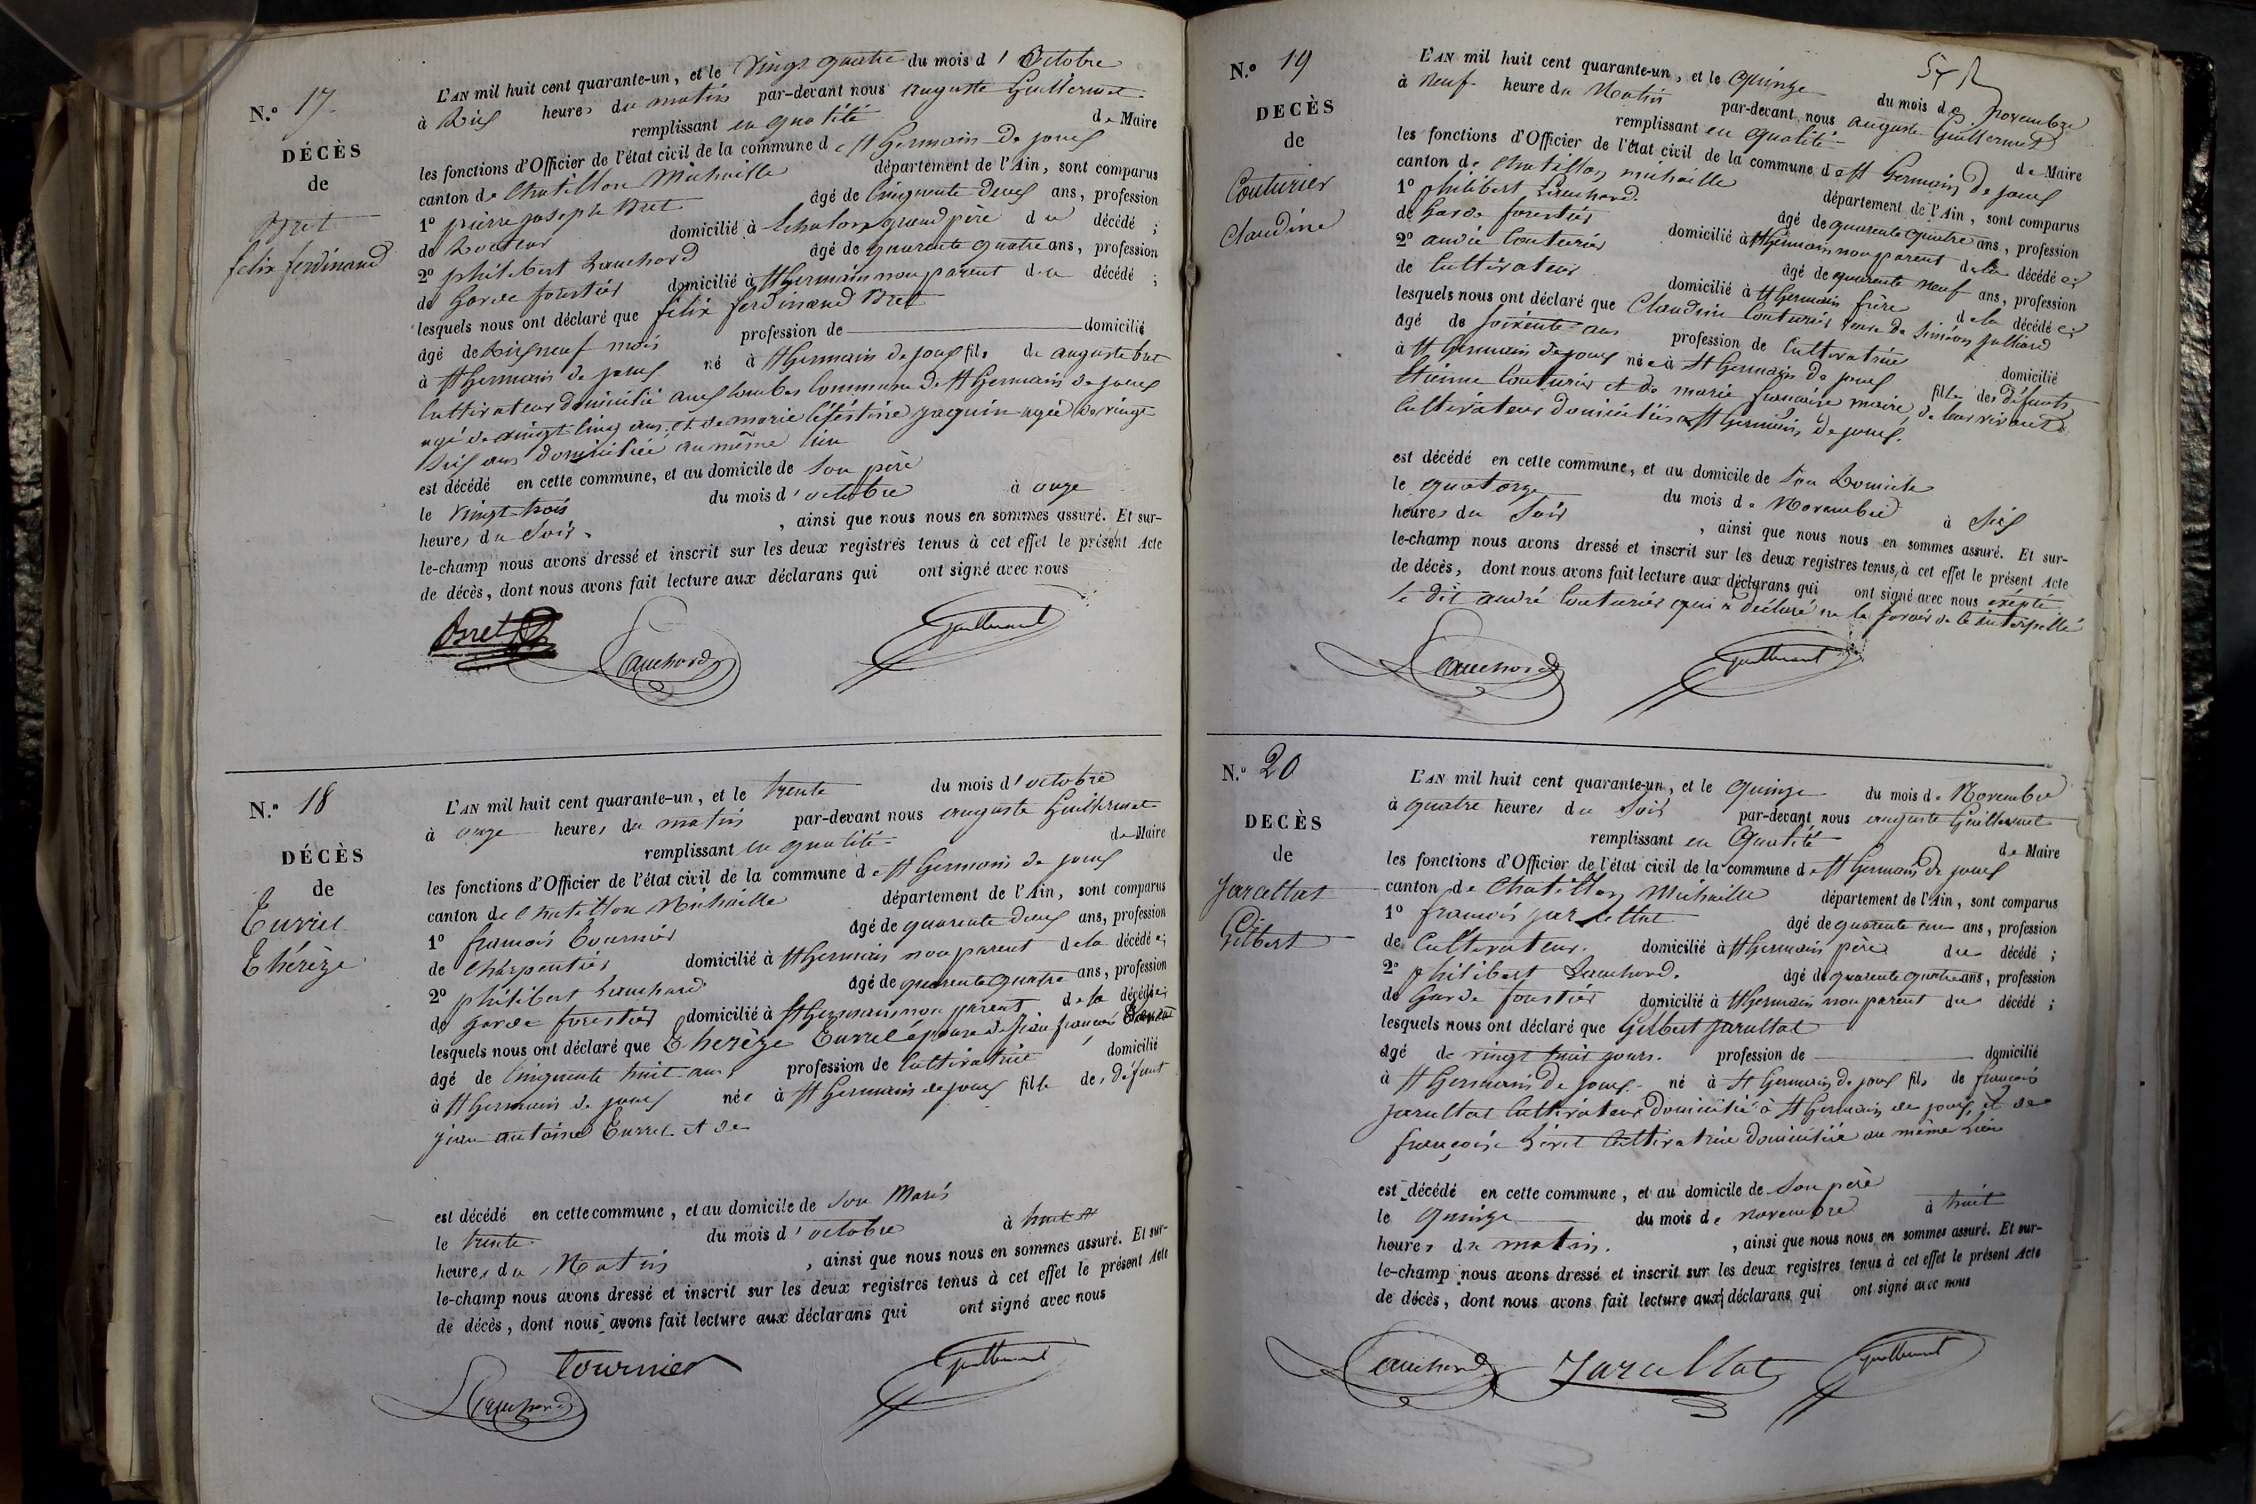 N.º 17.
DÉCÈS
de
Bret
felix ferdinand
L'AN mil huit cent quarante-un, et le vingt quatre du mois d' Octobre
à Dix heures du matin par-devant nous auguste Guillermet
remplissant en qualité de Maire
les fonctions d'Officier de l'état civil de la commune de St Germain de joux
canton de Chatillon Michaille département de l'Ain, sont comparus
1º pierre joseph Bret âgé de Cinquante deux ans, profession
de Docteur domicilié à Echalon grand père du décédé ;
2º philibert Lanchard âgé de quarente quatre ans, profession
de Garde forestier domicilié à St Germain non parent du décédé ;
lesquels nous ont déclaré que felix ferdinand Bret
âgé de Dix neuf mois profession de domicilié
à St Germain de joux né à St Germain de joux fils de auguste bret
Cultivateur domicilié aux Combes Commune de St Germain de joux
agé de vingt cinq ans et de marie Céléstine jaquin agée de vingt
Six ans domiciliée au même lieu
est décédé en cette commune, et au domicile de Son père
le vingt trois du mois d'octobre à onze
heures du Soir. , ainsi que nous nous en sommes assuré. Et sur-
le-champ nous avons dressé et inscrit sur les deux registres tenus à cet effet le présent Acte
de décès, dont nous avons fait lecture aux déclarans qui ont signé avec nous
Bret Lanchard Guillermet
N.º 18
DÉCÈS
de
Eurrel
Thérèze
L'AN mil huit cent quarante-un, et le trente du mois d'octobre
à onze heures du matin par-devant nous auguste Guillermet
remplissant en qualité de Maire
les fonctions d'Officier de l'état civil de la commune de St Germain de joux
canton de Chatillon Michaille département de l'Ain, sont comparus
1º francois Tournier âgé de quarente deux ans, profession
de Charpentier domicilié à St Germain non parent de la décédée;
2º philibert Lanchard âgé de quarente quatre ans, profession
de garde forestier domicilié à St Germain non parent de la décédée;
lesquels nous ont déclaré que Thérèze Eurrel épouse de Jean francois
âgé de Cinquente huit ans profession de Cultivatrice domicilié
à St Germain de joux née à St Germain de joux fille de défunt
jean antoine Eurrel et de
est décédé en cette commune, et au domicile de Son Maris
le trente du mois d'octobre à huit
heures du Matin , ainsi que nous nous en sommes assuré. Et sur-
le-champ nous avons dressé et inscrit sur les deux registres tenus à cet effet le présent Acte
de décès, dont nous avons fait lecture aux déclarans qui ont signé avec nous
Lanchard Tournier Guillermet
N.º 19
DÉCÈS
de
Couturier
Claudine
L'AN mil huit cent quarante-un, et le Quinze du mois de Novembre
à neuf heure du Matin par-devant nous auguste Guillermet
remplissant en qualité de Maire
les fonctions d'Officier de l'état civil de la commune de St Germain de joux
canton de Chatillon michaille département de l'Ain, sont comparus
1º philibert Lanchard. âgé de quarente quatre ans, profession
de Garde forestier domicilié à St Germain non parent de la décédé e;
2º andré Couturier âgé de quarente neuf ans, profession
de Cultivateur domicilié à St Germain frère de la décédé e;
lesquels nous ont déclaré que Claudine Couturier veuve de Siméon julliard
âgé de soixente ans profession de Cultivatrice domicilié
à St Germain de joux née à St Germain de joux fille des défunts
Etienne Couturier et de marie francoise maire, de leur vivant
Cultivateur domiciliés a St Germain de joux.
est décédé en cette commune, et au domicile de Son Domicile
le quatorze du mois de Novembre à Six
heures du Soir , ainsi que nous nous en sommes assuré. Et sur-
le-champ nous avons dressé et inscrit sur les deux registres tenus à cet effet le présent Acte
de décès, dont nous avons fait lecture aux déclarans qui ont signé avec nous exépté
le dit andré Couturier qui a déclaré ne le savoir de ce interpellé
Lanchard Guillermet
N.º 20
DÉCÈS
de
Jarcellat
Gilbert
L'AN mil huit cent quarante-un, et le Quinze du mois de Novembre
à quatre heures du Soir par-devant nous auguste Guillermet
remplissant en Qualité de Maire
les fonctions d'Officier de l'état civil de la commune de St Germain de joux
canton de Chatillon Michaille département de l'Ain, sont comparus
1º francois jarcellat âgé de quarente un ans, profession
de Cultivateur. domicilié à St Germain père du décédé ;
2º philibert Lanchard. âgé de quarente quatre ans, profession
de Garde forestier domicilié à St Germain non parent du décédé ;
lesquels nous ont déclaré que Gilbert jarcellat
âgé de vingt huit jours. profession de domicilié
à St Germain de joux. né à St Germain de joux fils de francois
jarcellat Cultivateur domicilié à St Germain de joux et de
françoise Livet Cultivatrice domiciliée au même Lieu
est décédé en cette commune, et au domicile de Son père
le quinze du mois de novembre à huit
heures du matin. , ainsi que nous nous en sommes assuré. Et sur-
le-champ nous avons dressé et inscrit sur les deux registres tenus à cet effet le présent Acte
de décès, dont nous avons fait lecture aux déclarans qui ont signé avec nous
Lanchard Jarcellat Guillermet